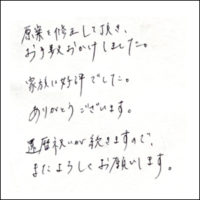 原案を修正して頂き、
お手数おかけしました。
家族に好評でした。
ありがとうございます。
還暦祝いが続きますので、
またよろしくお願いします。